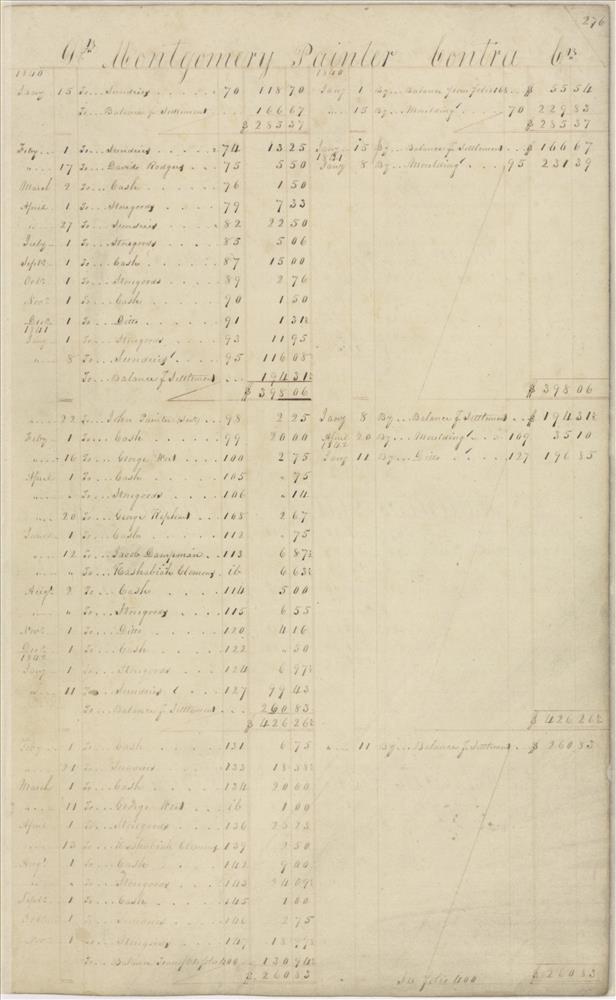 276
Dr Montgomery Painter Contra Cr
1840 1840
Jany 15 To Sundries 70 118 70 Jany 1 By Balance from folio 168 $ 55 54
To Balance of Settlement 166 67 " 15 By Moulding 70 229 83
$ 285 37 $ 285 37
Feby 1 To Sundries 74 13 25 Jany 15 By Balance of Settlement $ 166 67
1841
" 17 To Davids Rodgers 75 5 50 Jany 8 By Moulding 95 231 39
March 2 To Cash 76 1 50
April 1 To Storegoods 79 7 33
" 27 To Sundries 82 22 50
July 1 To Storegoods 85 5 06
Septr 1 To Cash 87 15 00
Octr 1 To Storegoods 89 2 76
Novr 1 To Cash 90 1 50
Decr 1 To Ditto 91 1 31½
1841
Jany 1 To Storegoods 93 11 95
" 8 To Sundries 95 116 08
To Balance of Settlement 194 31½
$ 398 06 $ 398 06
" 22 To John Painter 98 2 25 Jany 8 By Balance of Settlement $ 194 31½
Feby 1 To Cash 99 20 00 April 20 By Moulding 109 35 10
1842
" 16 To George West 100 2 75 Jany 11 By Ditto 127 196 85
April 1 To Cash 105 " 75
" " To Storegoods 106 " 14
" 20 To George Hiphant 108 2 67
1 To Cash 112 " 75
" 12 To Jacob Dampman 113 6 87½
" " To Hashabiah Clemens ib 6 63½
Augt 2 To Cash 114 5 00
" " To Storegoods 115 6 55
Novr 1 To Ditto 120 4 16
Decr 1 To Cash 122 " 50
1842
Jany 1 To Storegoods 124 6 97½
" 11 To Sundries 127 99 43
To Balance of Settlement 260 83
$ 426 26½ $ 426 26½
Feby 1 To Cash 131 6 75 " 11 By Balance of Settlement $ 260 83
" 21 To Sundries 133 18 38½
March 1 To Cash 134 20 60
" 11 To George West ib 1 00
April 1 To Storegoods 136 25 23
" 13 To Hashabiah Clemens 139 2 50
Augt 1 To Cash 142 9 00
" " To Storegoods 143 24 09½
Septr 1 To Cash 145 1 00
Octr 1 To Sundries 146 2 75
Novr 1 To Storegoods 147
To Balance Transfd to folio 400 130 94½
$ 260 83 To folio 400 $ 260 83